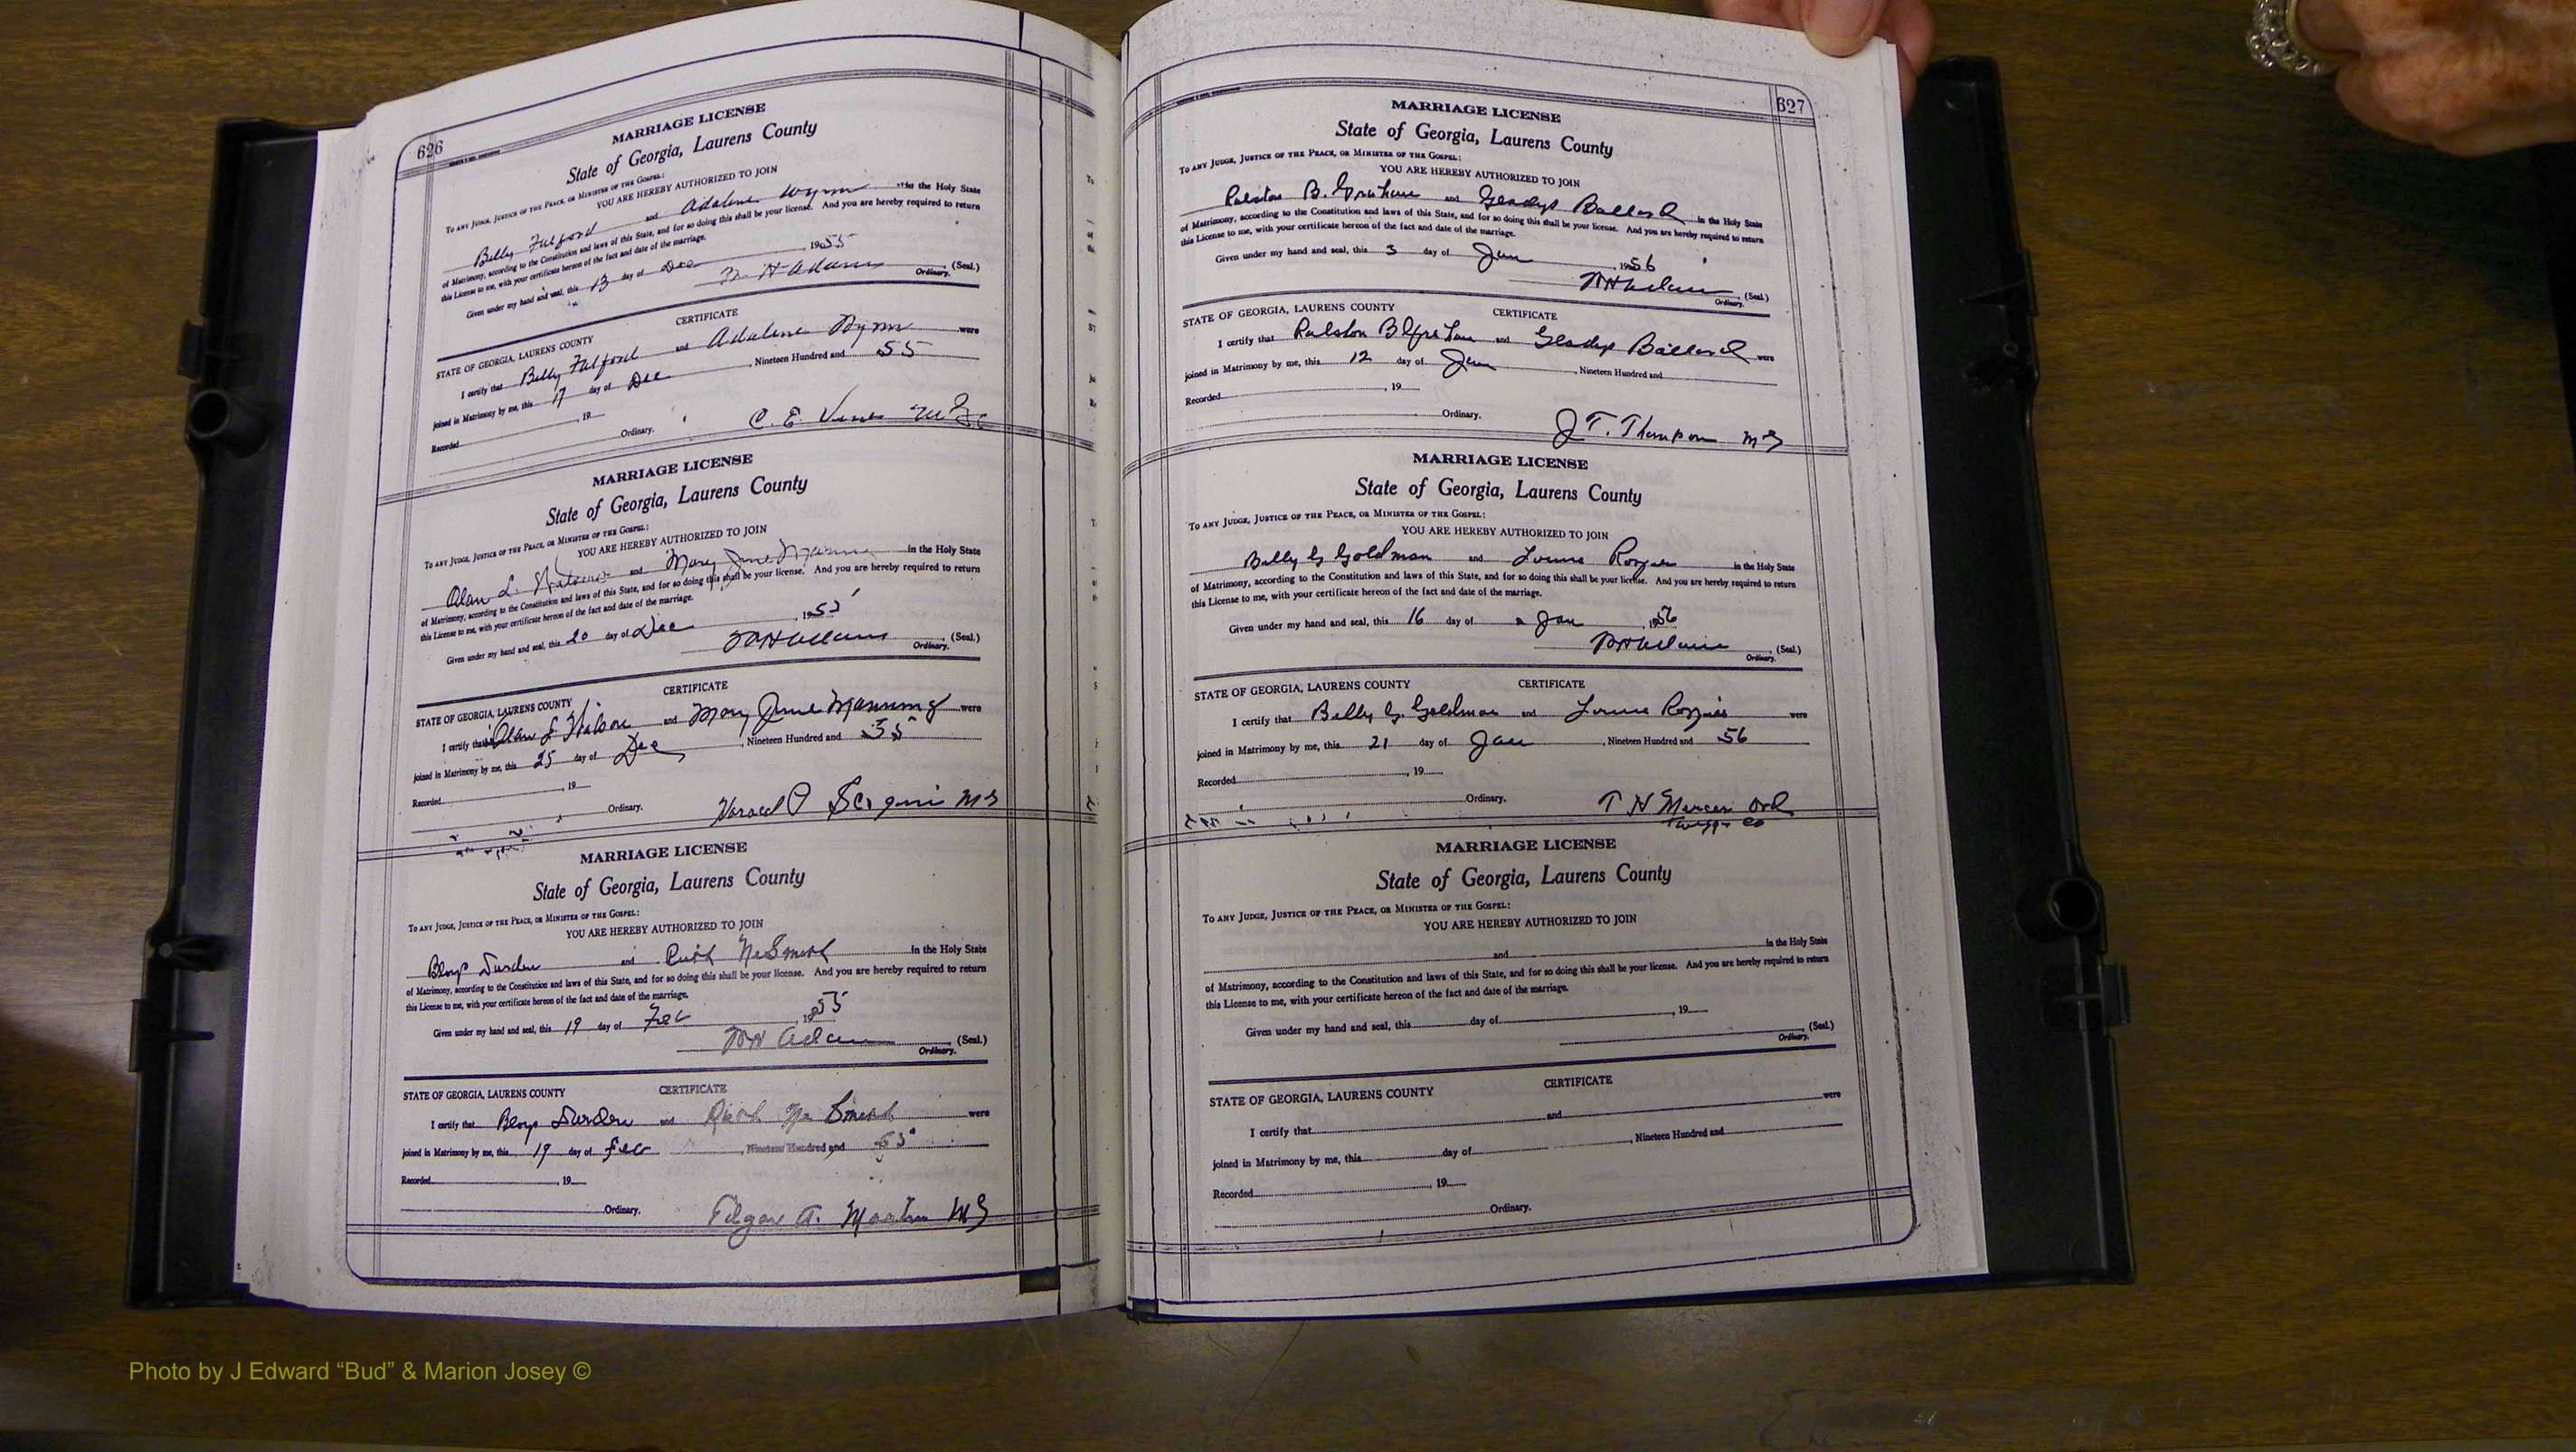 626
MARRIAGE LICENSE
State of Georgia, Laurens County
TO ANY JUDGE, JUSTICE OF THE PEACE, OR MINISTER OF THE GOSPEL:
YOU ARE HEREBY AUTHORIZED TO JOIN
Billy Fulford and Adaline Wynn in the Holy State
of Matrimony, according to the Constitution and laws of this State, and for so doing this shall be your license. And you are hereby required to return
this License to me, with your certificate hereon of the fact and date of the marriage.
Given under my hand and seal, this 13 day of Dec 1955
Adams (Seal.)
Ordinary.
CERTIFICATE
STATE OF GEORGIA, LAURENS COUNTY
I certify that Billy Fulford and Adaline Wynn were
joined in Matrimony by me, this 17 day of Dec, Nineteen Hundred and 55
Recorded, 19
Ordinary.
C. E. Vines
MARRIAGE LICENSE
State of Georgia, Laurens County
TO ANY JUDGE, JUSTICE OF THE PEACE, OR MINISTER OF THE GOSPEL:
YOU ARE HEREBY AUTHORIZED TO JOIN
Alan L. and Mary June in the Holy State
of Matrimony, according to the Constitution and laws of this State, and for so doing this shall be your license. And you are hereby required to return
this License to me, with your certificate hereon of the fact and date of the marriage.
Given under my hand and seal, this 20 day of Dec, 1955
(Seal.)
Ordinary.
CERTIFICATE
STATE OF GEORGIA, LAURENS COUNTY
I certify that Alan L and Mary June Manning were
joined in Matrimony by me, this 25 day of Dec, Nineteen Hundred and 55
Recorded, 19
Ordinary.
MARRIAGE LICENSE
State of Georgia, Laurens County
TO ANY JUDGE, JUSTICE OF THE PEACE, OR MINISTER OF THE GOSPEL:
YOU ARE HEREBY AUTHORIZED TO JOIN
Bloys Durden and Ruth NeSmith in the Holy State
of Matrimony, according to the Constitution and laws of this State, and for so doing this shall be your license. And you are hereby required to return
this License to me, with your certificate hereon of the fact and date of the marriage.
Given under my hand and seal, this 19 day of, 1955
Adams (Seal.)
Ordinary.
CERTIFICATE
STATE OF GEORGIA, LAURENS COUNTY
I certify that Bloys Durden and Ruth Ne Smith were
joined in Matrimony by me, this 19 day of, Nineteen Hundred and
Recorded, 19
Ordinary. Edgar A. MG
627
MARRIAGE LICENSE
State of Georgia, Laurens County
TO ANY JUDGE, JUSTICE OF THE PEACE, OR MINISTER OF THE GOSPEL:
YOU ARE HEREBY AUTHORIZED TO JOIN
Ralston B. Graham and Gladys Ballard in the Holy State
of Matrimony, according to the Constitution and laws of this State, and for so doing this shall be your license. And you are hereby required to return
this License to me, with your certificate hereon of the fact and date of the marriage.
Given under my hand and seal, this 3 day of Jan, 1956
(Seal.)
Ordinary.
STATE OF GEORGIA, LAURENS COUNTY CERTIFICATE
I certify that Ralston B Graham and Gladys Ballard were
joined in Matrimony by me, this 12 day of Jan, Nineteen Hundred and
Recorded, 19
Ordinary.
J T. Thompson MG
MARRIAGE LICENSE
State of Georgia, Laurens County
TO ANY JUDGE, JUSTICE OF THE PEACE, OR MINISTER OF THE GOSPEL:
YOU ARE HEREBY AUTHORIZED TO JOIN
Billy G Goldman and Louise Rozier in the Holy State
of Matrimony, according to the Constitution and laws of this State, and for so doing this shall be your license. And you are hereby required to return
this License to me, with your certificate hereon of the fact and date of the marriage.
Given under my hand and seal, this 16 day of Jan, 1956
(Seal.)
Ordinary.
STATE OF GEORGIA, LAURENS COUNTY CERTIFICATE
I certify that Billy G Goldman and Louise Rozier were
joined in Matrimony by me, this 21 day of Jan, Nineteen Hundred and 56
Recorded, 19
Ordinary. T H Mercer Ord
Twiggs Co
MARRIAGE LICENSE
State of Georgia, Laurens County
TO ANY JUDGE, JUSTICE OF THE PEACE, OR MINISTER OF THE GOSPEL:
YOU ARE HEREBY AUTHORIZED TO JOIN
and in the Holy State
of Matrimony, according to the Constitution and laws of this State, and for so doing this shall be your license. And you are hereby required to return
this License to me, with your certificate hereon of the fact and date of the marriage.
Given under my hand and seal, this day of, 19
(Seal.)
Ordinary.
CERTIFICATE
STATE OF GEORGIA, LAURENS COUNTY
I certify that and were
joined in Matrimony by me, this day of, Nineteen Hundred and
Recorded, 19
Ordinary.
Photo by J Edward “Bud” & Marion Josey ©